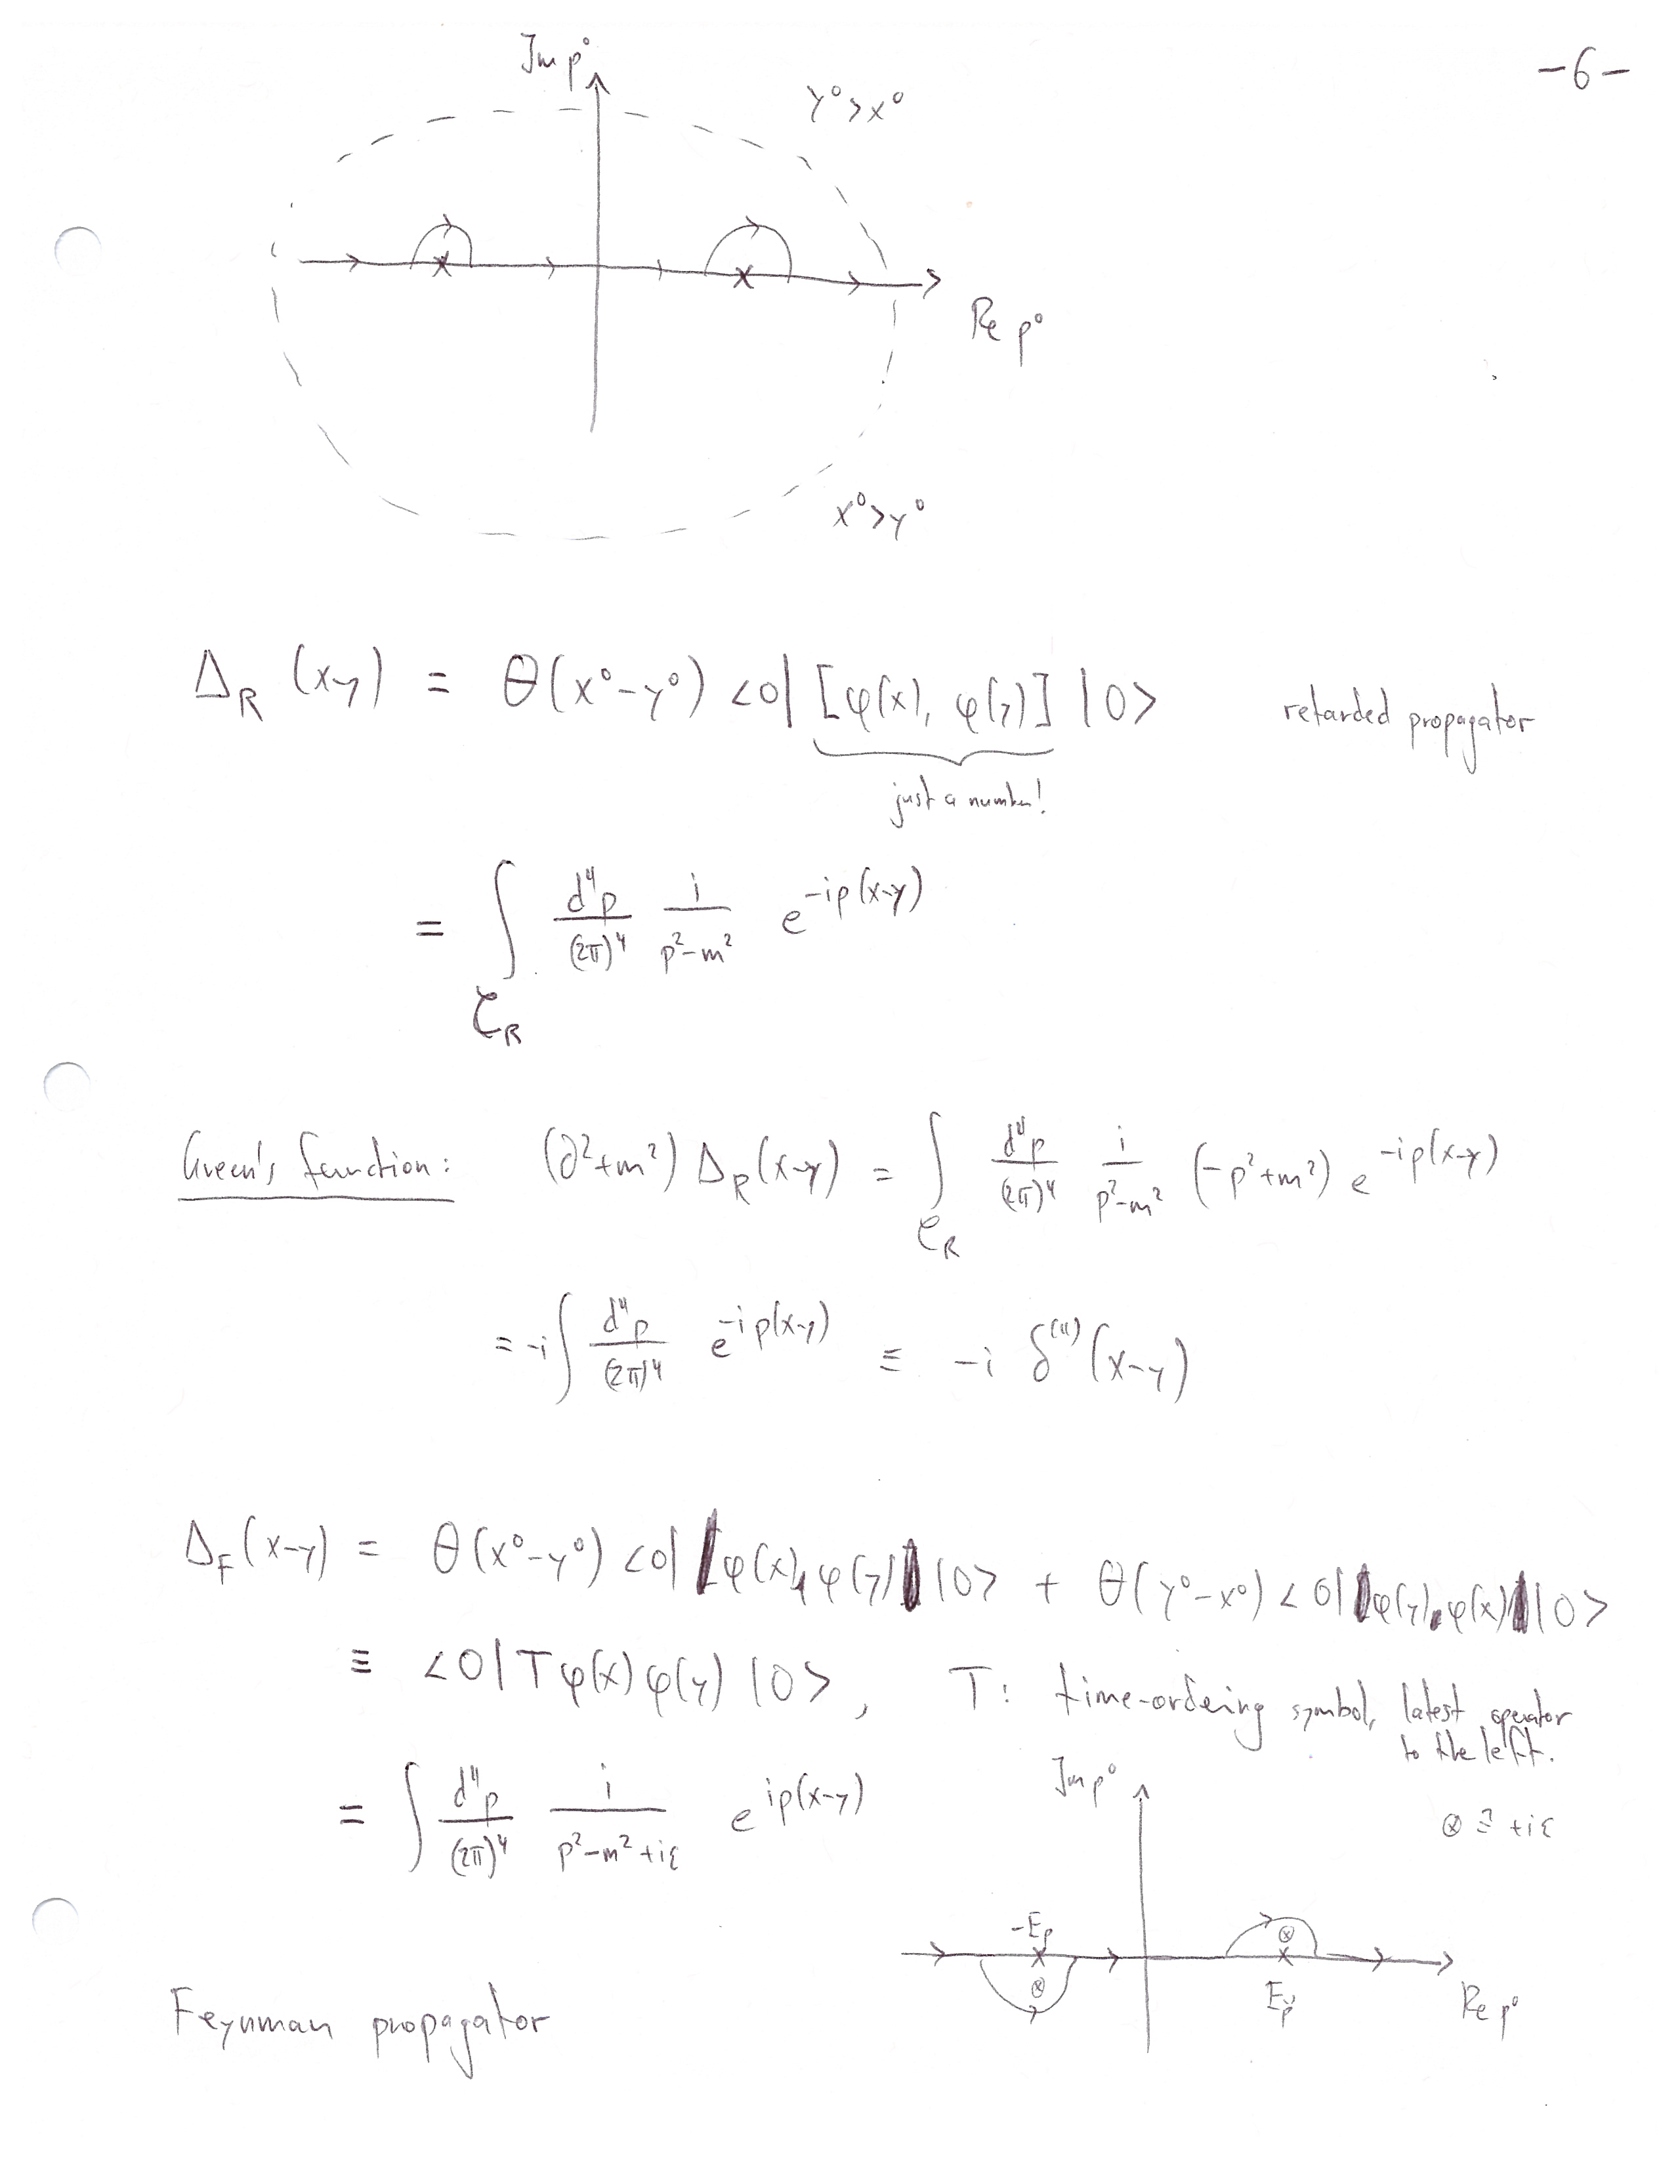 -6-
Im p⁰
y⁰>x⁰
Re p⁰
x⁰>y⁰
Δ_R (x-y) = θ(x⁰-y⁰) <0| [φ(x), φ(y)] |0> retarded propagator
just a number!
= ∫_{C_R} d⁴p/(2π)⁴ i/(p²-m²) e^{-ip(x-y)}
Green's function: (∂²+m²) Δ_R(x-y) = ∫_{C_R} d⁴p/(2π)⁴ i/(p²-m²) (-p²+m²) e^{-ip(x-y)}
= -i∫ d⁴p/(2π)⁴ e^{-ip(x-y)} ≡ -i δ^{(4)}(x-y)
Δ_F(x-y) = θ(x⁰-y⁰) <0| φ(x) φ(y) |0> + θ(y⁰-x⁰) <0| φ(y) φ(x) |0>
≡ <0|Tφ(x)φ(y)|0>, T: time-ordering symbol, latest operator
to the left.
= ∫ d⁴p/(2π)⁴ i/(p²-m²+iε) e^{ip(x-y)}
Im p⁰
⊗ ≙ +iε
-E_p
⊗
⊗
E_p
Re p⁰
Feynman propagator